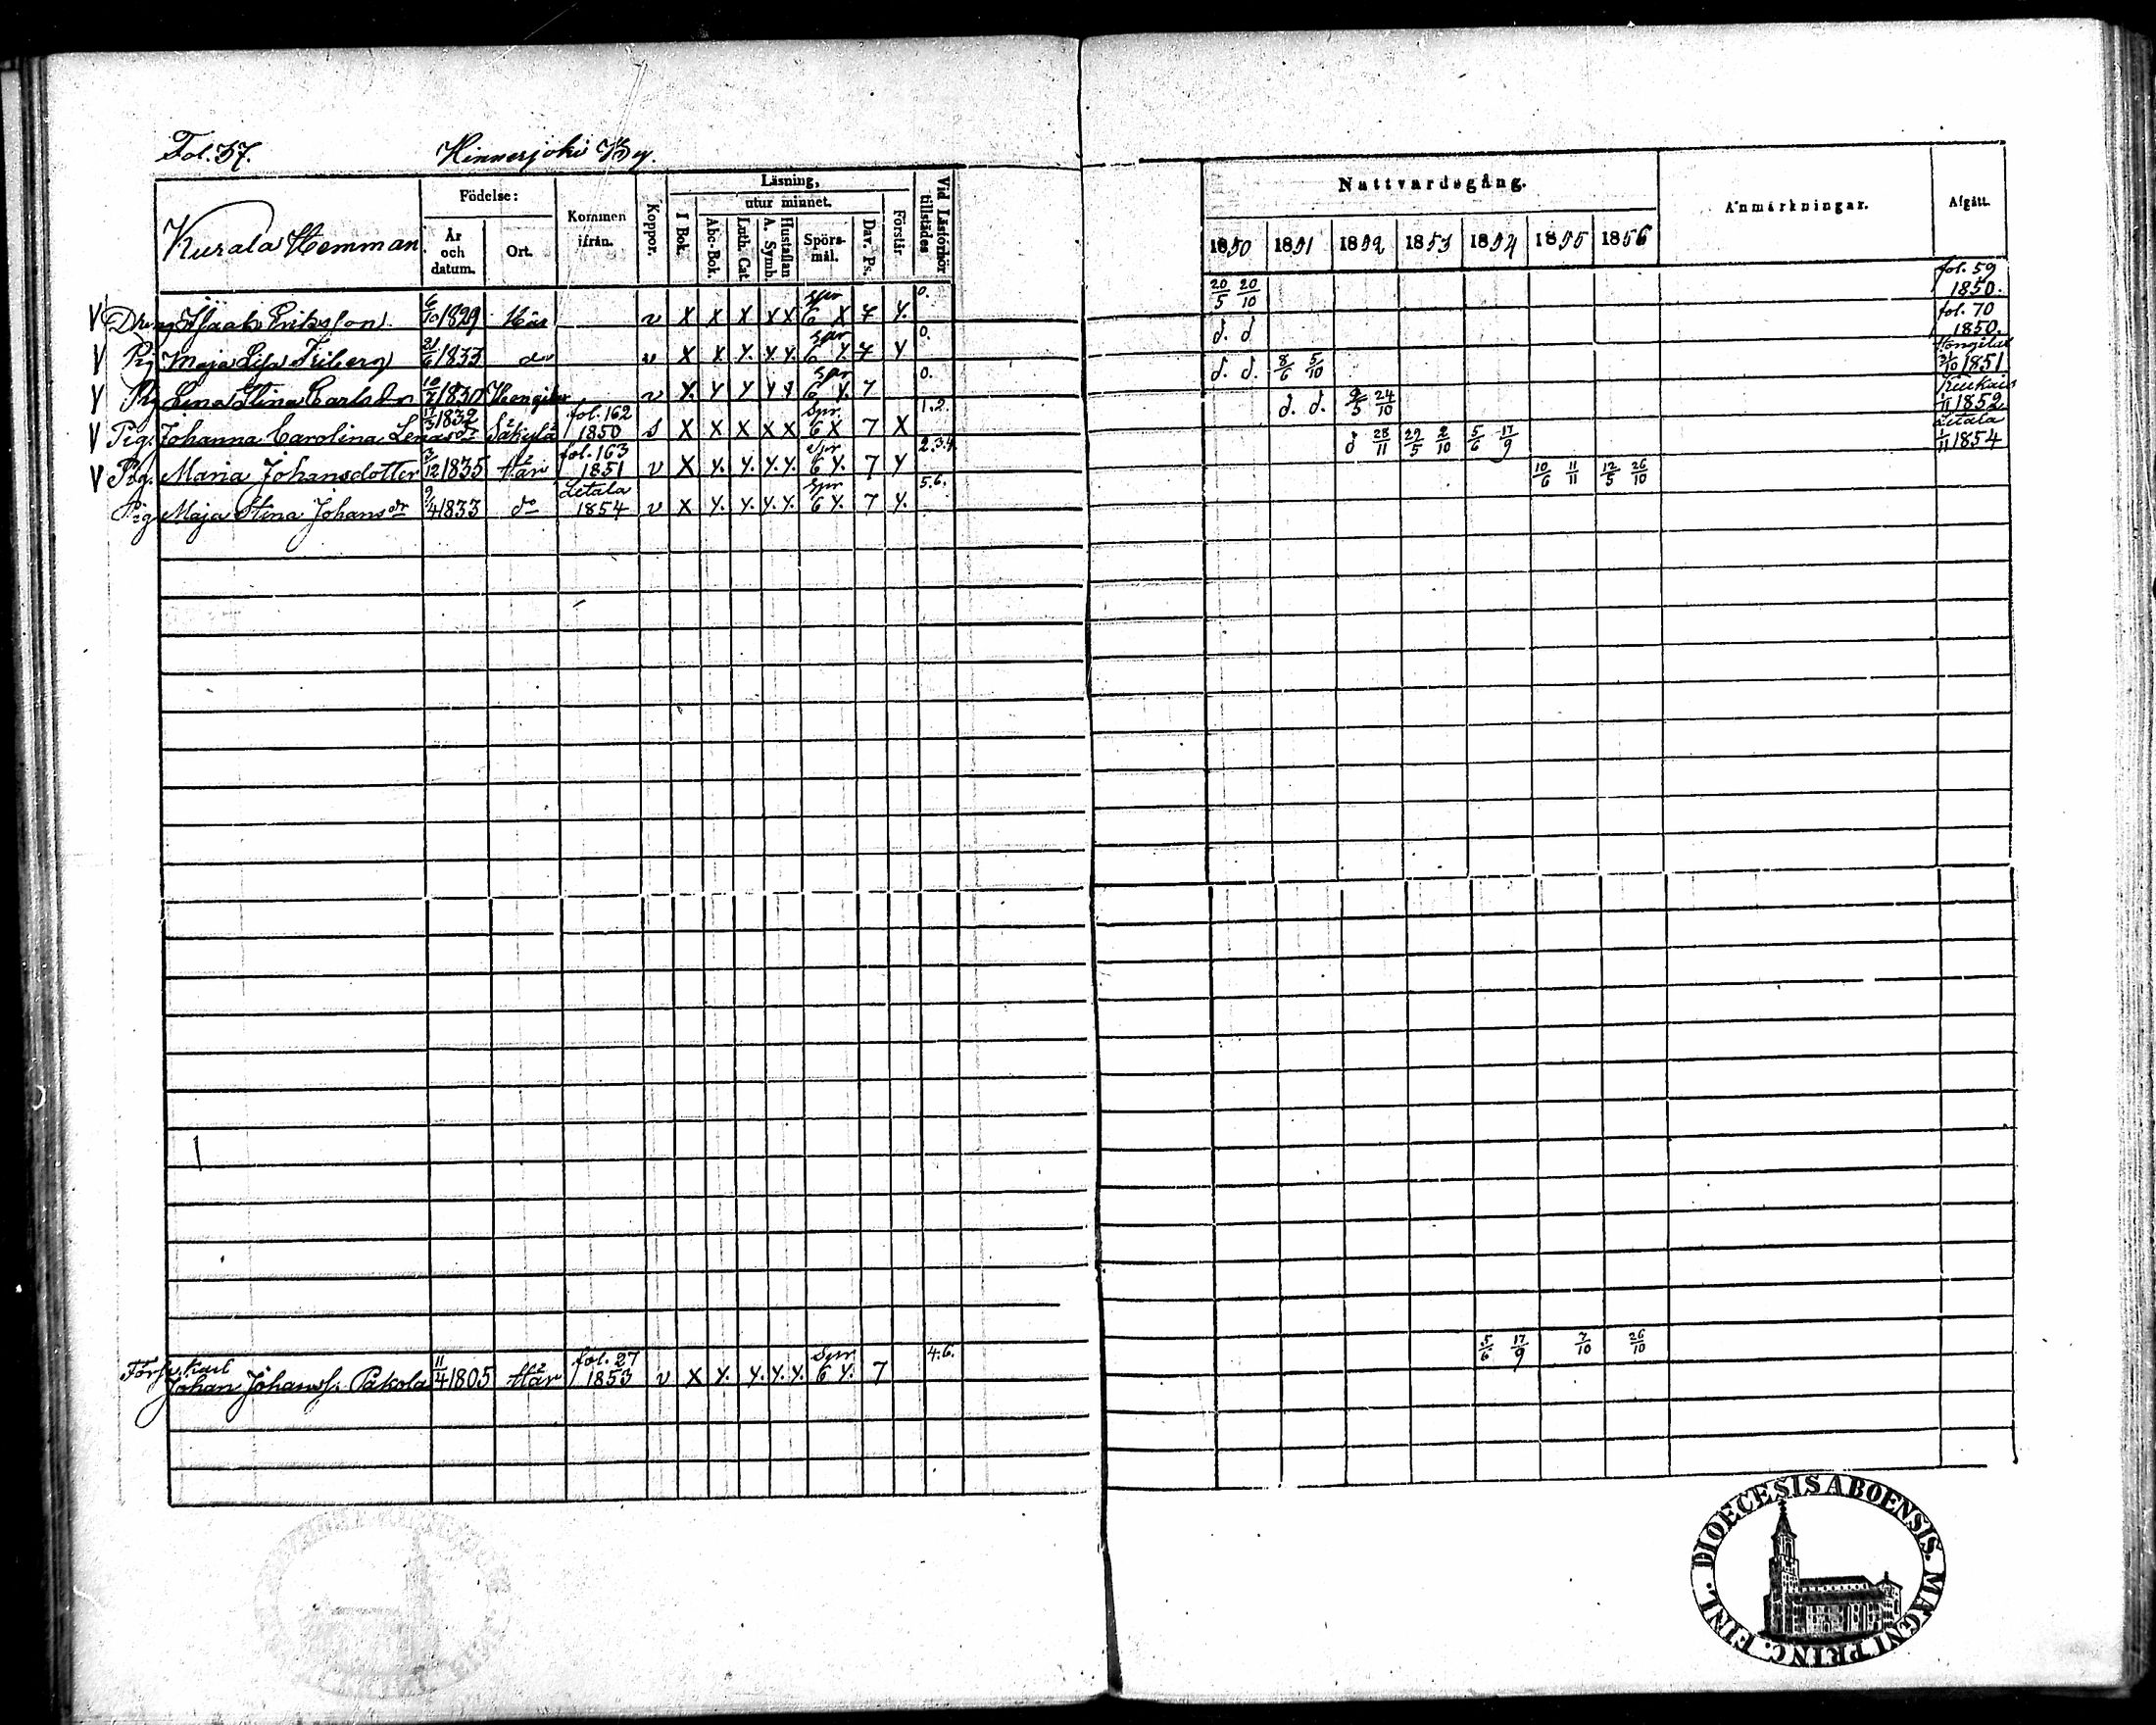 Fol. 37. Hinnerjoki By.
Kurala Hemman
Födelse:
År och datum.
Ort.
Kommen ifrån.
Koppor.
Läsning,
utur minnet.
I Bok.
Abc-Bok.
Luth. Cat.
A. Symb.
Hustaflan
Spörsmål.
Dav. Ps.
Förstår
Vid Läsförhör tillstädes
Nattvardsgång.
1850 1851 1852 1853 1854 1855 1856
Anmärkningar.
Afgått.
Dreng Isaak Eriksson 6/10 1829 Här v X X X X X Spr 6 X 7 Y. 0. 20/5 20/10 fol. 59 1850.
Pig Maja Lisa Friberg 21/6 1833 do v X X Y. Y. Y. Spr 6 Y. 7 Y 0. d. d. fol. 70 1850.
Pig Lena Stina Carlsdr 1830 v X. Y Y Y Y Spr 6 Y. 7 0. d. d. 8/6 5/10 31/10 1851
Pig. Johanna Carolina 17/3 1832 Säkylä fol. 162 1850 s X X X X X Spr. 6 X 7 X 1.2. d. d. 24/10 1/11 1852
Pig. Maria Johansdotter 3/12 1835 Här fol. 163 1851 v X Y. Y. Y. Y. Spr 6 Y. 7 Y 2.3.4. d 28/11 29/5 2/10 5/6 17/9 Letala 1/11 1854
Pig Maja Stina Johansdr 9/4 1833 do Letala 1854 v X Y. Y. Y. Y. Spr 6 Y. 7 Y. 5.6. 10/6 11/11 12/5 26/10
Karl
Johan Johanss. Pakola 11/4 1805 Här fol. 27 1853 v X Y. Y. Y. Y. Spr 6 Y. 7 4.6. 5/6 17/9 7/10 26/10
FINL. DIOECESIS ABOENSIS. MAGNI PRINC.